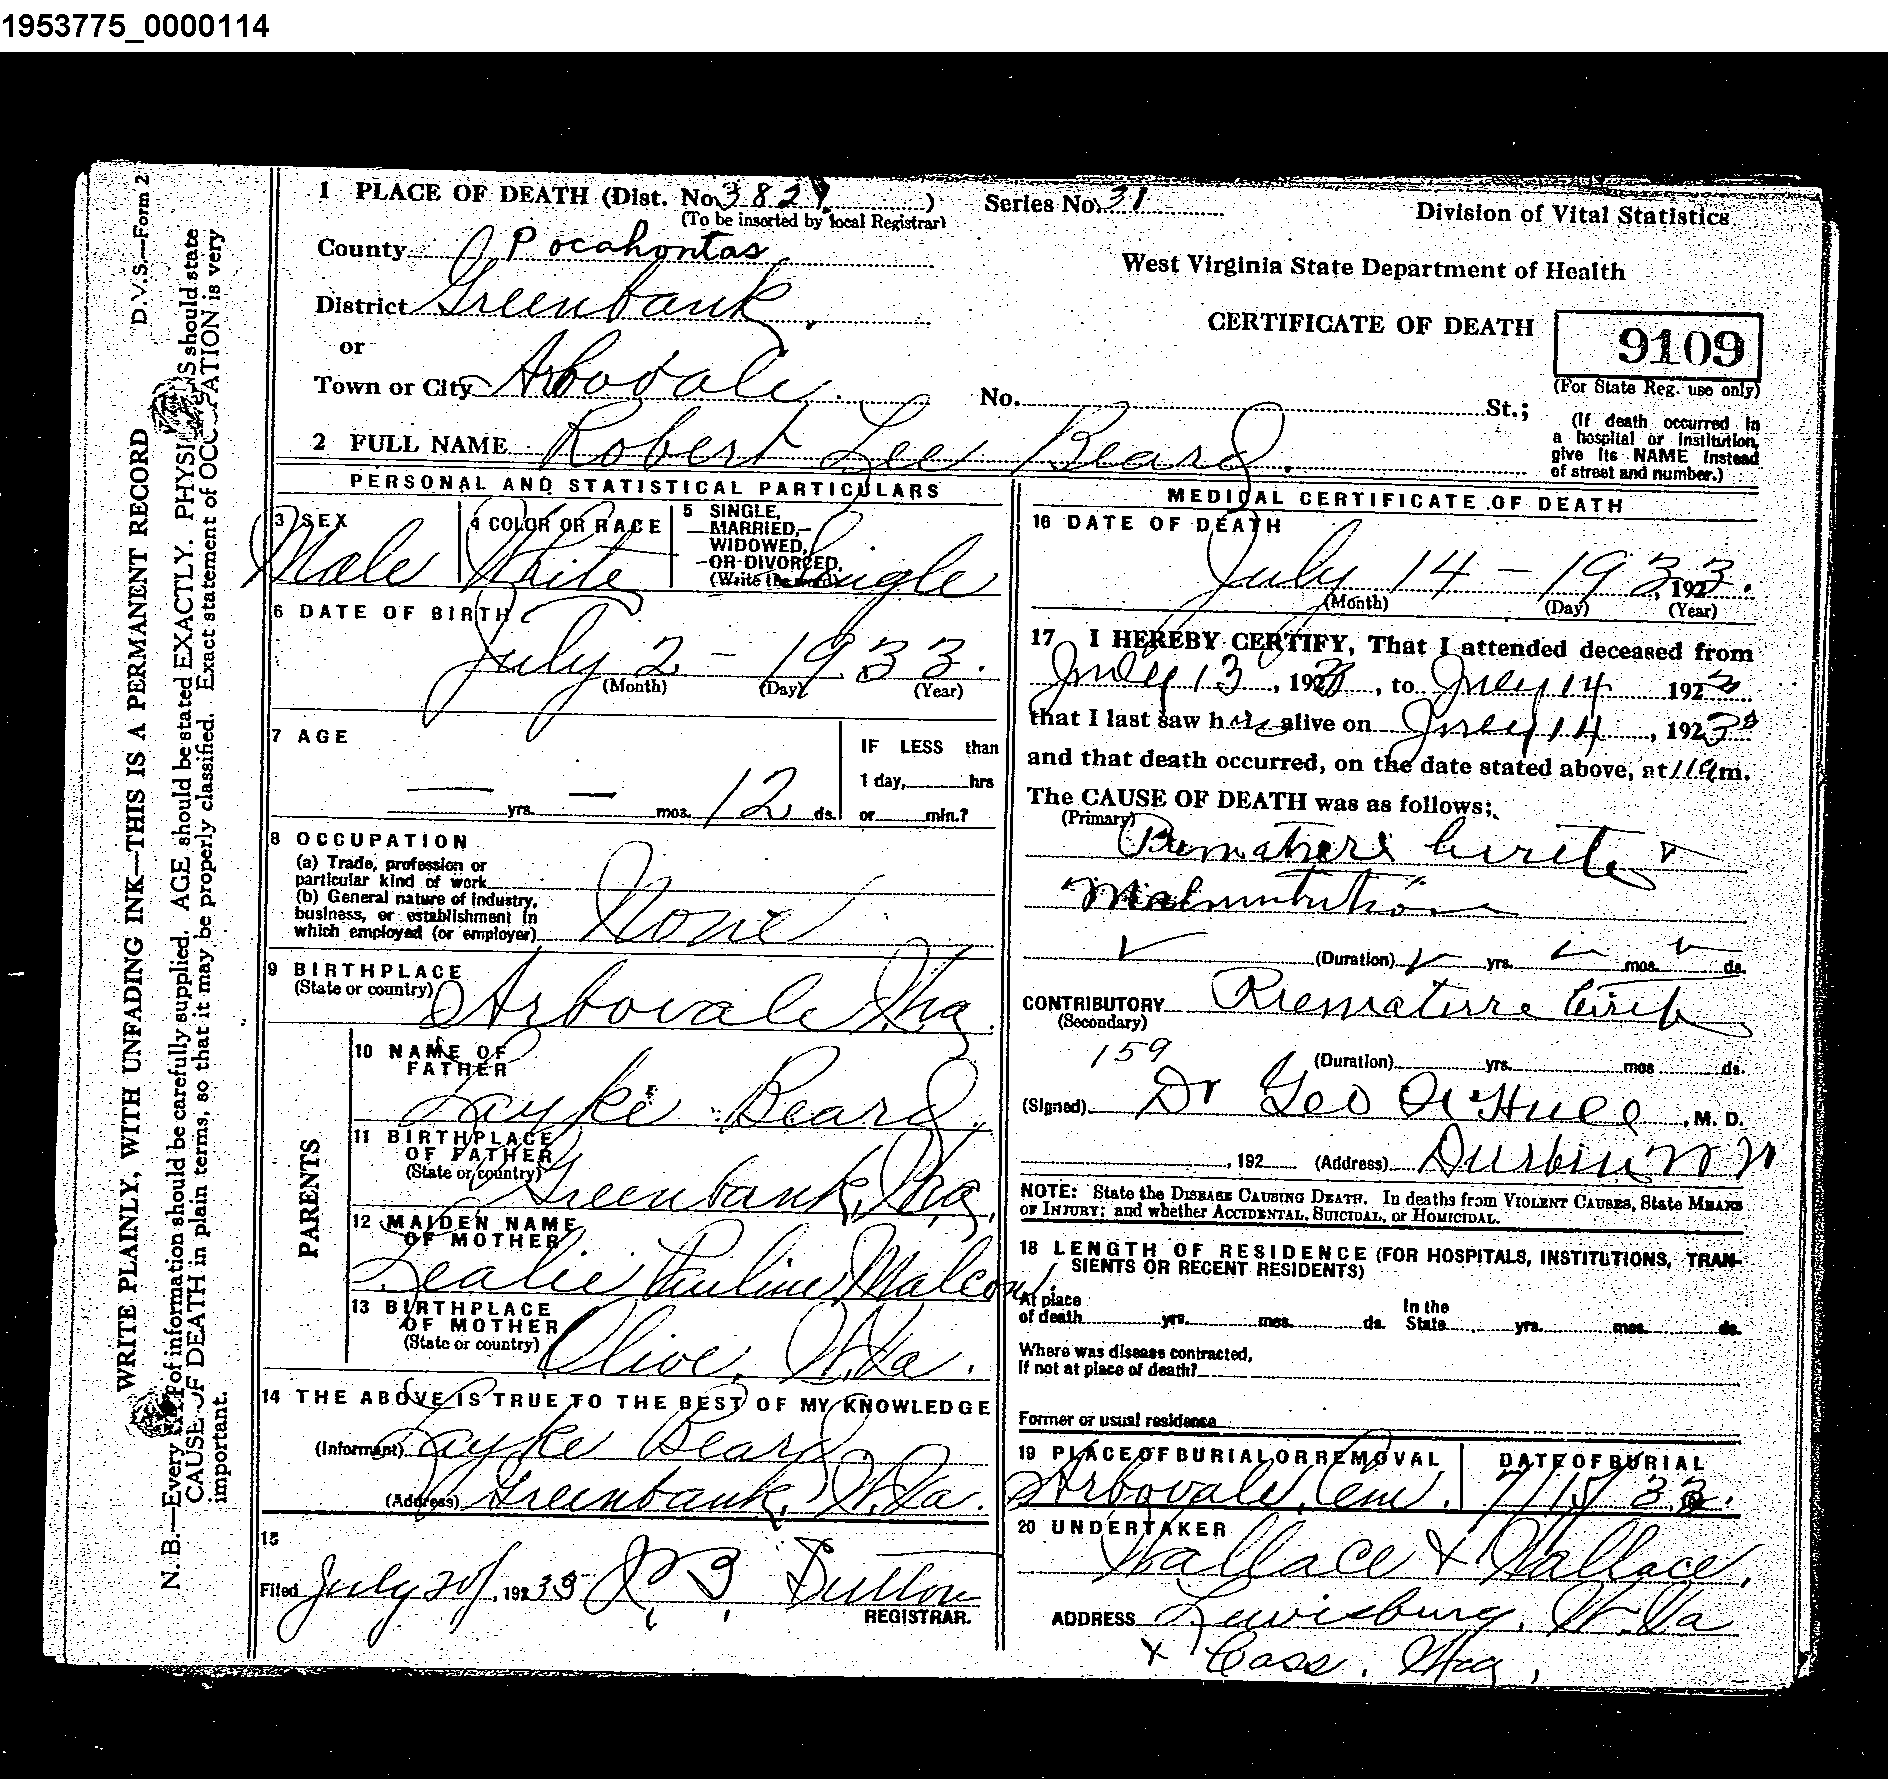 1953775_0000114
D.V.S.—Form 2
WRITE PLAINLY, WITH UNFADING INK—THIS IS A PERMANENT RECORD
N. B.—Every of information should be carefully supplied. AGE should be stated EXACTLY. PHYSI S should state
CAUSE OF DEATH in plain terms, so that it may be properly classified. Exact statement of OCC ATION is very
important.
1 PLACE OF DEATH (Dist. No. 3829 )
(To be inserted by local Registrar)
Series No. 31
Division of Vital Statistics
County Pocahontas
West Virginia State Department of Health
District Greenbank.
CERTIFICATE OF DEATH
9109
(For State Reg. use only)
or
Town or City Arbovale.
No. St.;
(If death occurred in
a hospital or institution,
give its NAME instead
of street and number.)
2 FULL NAME Robert Lee Beard.
PERSONAL AND STATISTICAL PARTICULARS
3 SEX
Male
4 COLOR OR RACE
White
5 SINGLE,
MARRIED,
WIDOWED,
OR DIVORCED,
(Write the word)
Single
6 DATE OF BIRTH
July 2 - 1933.
(Month) (Day) (Year)
7 AGE
— yrs. — mos. 12 ds.
IF LESS than
1 day, hrs
or min.?
8 OCCUPATION
(a) Trade, profession or
particular kind of work
(b) General nature of industry,
business, or establishment in
which employed (or employer)
None
9 BIRTHPLACE
(State or country)
Arbovale W.Va.
PARENTS
10 NAME OF
FATHER
Layke Beard.
11 BIRTHPLACE
OF FATHER
(State or country)
Greenbank, W.Va.
12 MAIDEN NAME
OF MOTHER
Lealie Pauline Malcom.
13 BIRTHPLACE
OF MOTHER
(State or country)
Olive, W.Va.
14 THE ABOVE IS TRUE TO THE BEST OF MY KNOWLEDGE
(Informant) Layke Beard
(Address) Greenbank, W.Va.
15
Filed July 20/, 192 33 Sutton
REGISTRAR.
MEDICAL CERTIFICATE OF DEATH
16 DATE OF DEATH
July 14 - 1933., 192
(Month) (Day) (Year)
17 I HEREBY CERTIFY, That I attended deceased from
July 13, 192 , to July 14 192
that I last saw h alive on July 14, 192
and that death occurred, on the date stated above, at 11 a m.
The CAUSE OF DEATH was as follows:
(Primary)
Premature birth
Malnutrition
(Duration) yrs. mos. ds.
CONTRIBUTORY Premature birth
(Secondary)
159
(Duration) yrs. mos ds.
(Signed) Dr Geo A Hull, M. D.
, 192 (Address) Durbin W V
NOTE: State the DISEASE CAUSING DEATH. In deaths from VIOLENT CAUSES, State MEANS
OF INJURY; and whether ACCIDENTAL, SUICIDAL, or HOMICIDAL.
18 LENGTH OF RESIDENCE (FOR HOSPITALS, INSTITUTIONS, TRAN-
SIENTS OR RECENT RESIDENTS)
At place
of death yrs. mos. ds.
In the
State yrs. mos. ds.
Where was disease contracted,
If not at place of death?
Former or usual residence
19 PLACE OF BURIAL OR REMOVAL
Arbovale, Cem.
DATE OF BURIAL
7/15/33.
20 UNDERTAKER
Wallace & Wallace,
ADDRESS Lewisburg, W.Va
& Cass, W.Va,